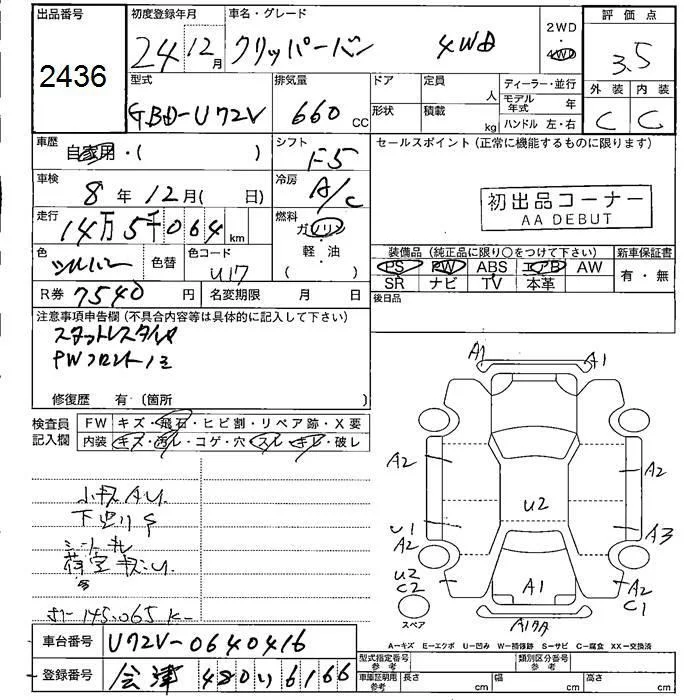 出品番号
2436
初度登録年月
24 12月
車名・グレード
クリッパーバン 4WD
2WD
・
4WD
評価点
3.5
外装 内装
C C
型式
GBD-U72V
排気量
660 CC
ドア
形状
定員
人
積載
kg
ディーラー・並行
モデル年式 年
ハンドル 左・右
車歴
自家用・( )
シフト
F5
セールスポイント(正常に機能するものに限ります)
初出品コーナー
AA DEBUT
車検
8年12月( 日)
冷房
A/C
走行
14万5千064km
燃料
ガソリン
軽・油
( )
色
シルバー
色替
色コード
U17
装備品(純正品に限り○をつけて下さい)
PS PW ABS エアB AW
SR ナビ TV 本革
新車保証書
有・無
R券 7540円
名変期限 月 日
後日品
注意事項申告欄(不具合内容等は具体的に記入して下さい)
スタットレスタイヤ
PWフロントノミ
修復歴 有(箇所 )
検査員記入欄
FW キズ・飛石・ヒビ割・リペア跡・X要
内装 キズ・汚レ・コゲ・穴・スレ・キレ・破レ
小キズAU
下廻りS
シートキレ
荷室キズ・U
145,065K
A1 A1
A2 A2
U2
U1 A3
A2
U2 A1 A2
C2 C1
スペア
A-キズ E-エクボ U-凹み W-補修跡 S-サビ C-腐食 XX-交換済
車台番号 U72V-0640416
登録番号 会津 480い6166
型式指定番号
参考
類別区分番号
参考
車庫証明用
参考
長さ cm 幅 cm 高さ cm